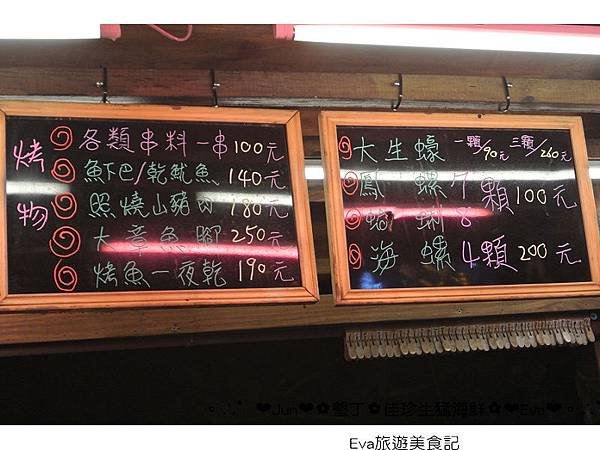 烤物
各類串料一串100元
魚下巴/乾魷魚 140元
照燒山豬肉 180元
大章魚腳 250元
烤魚一夜乾 190元
大生蠔 一顆/90元 三顆/260元
鳳螺7顆100元
蛤蜊8
海螺4顆200元
❤Jun❤✿墾丁✿佳珍生猛海鮮✿❤Eva❤
Eva旅遊美食記